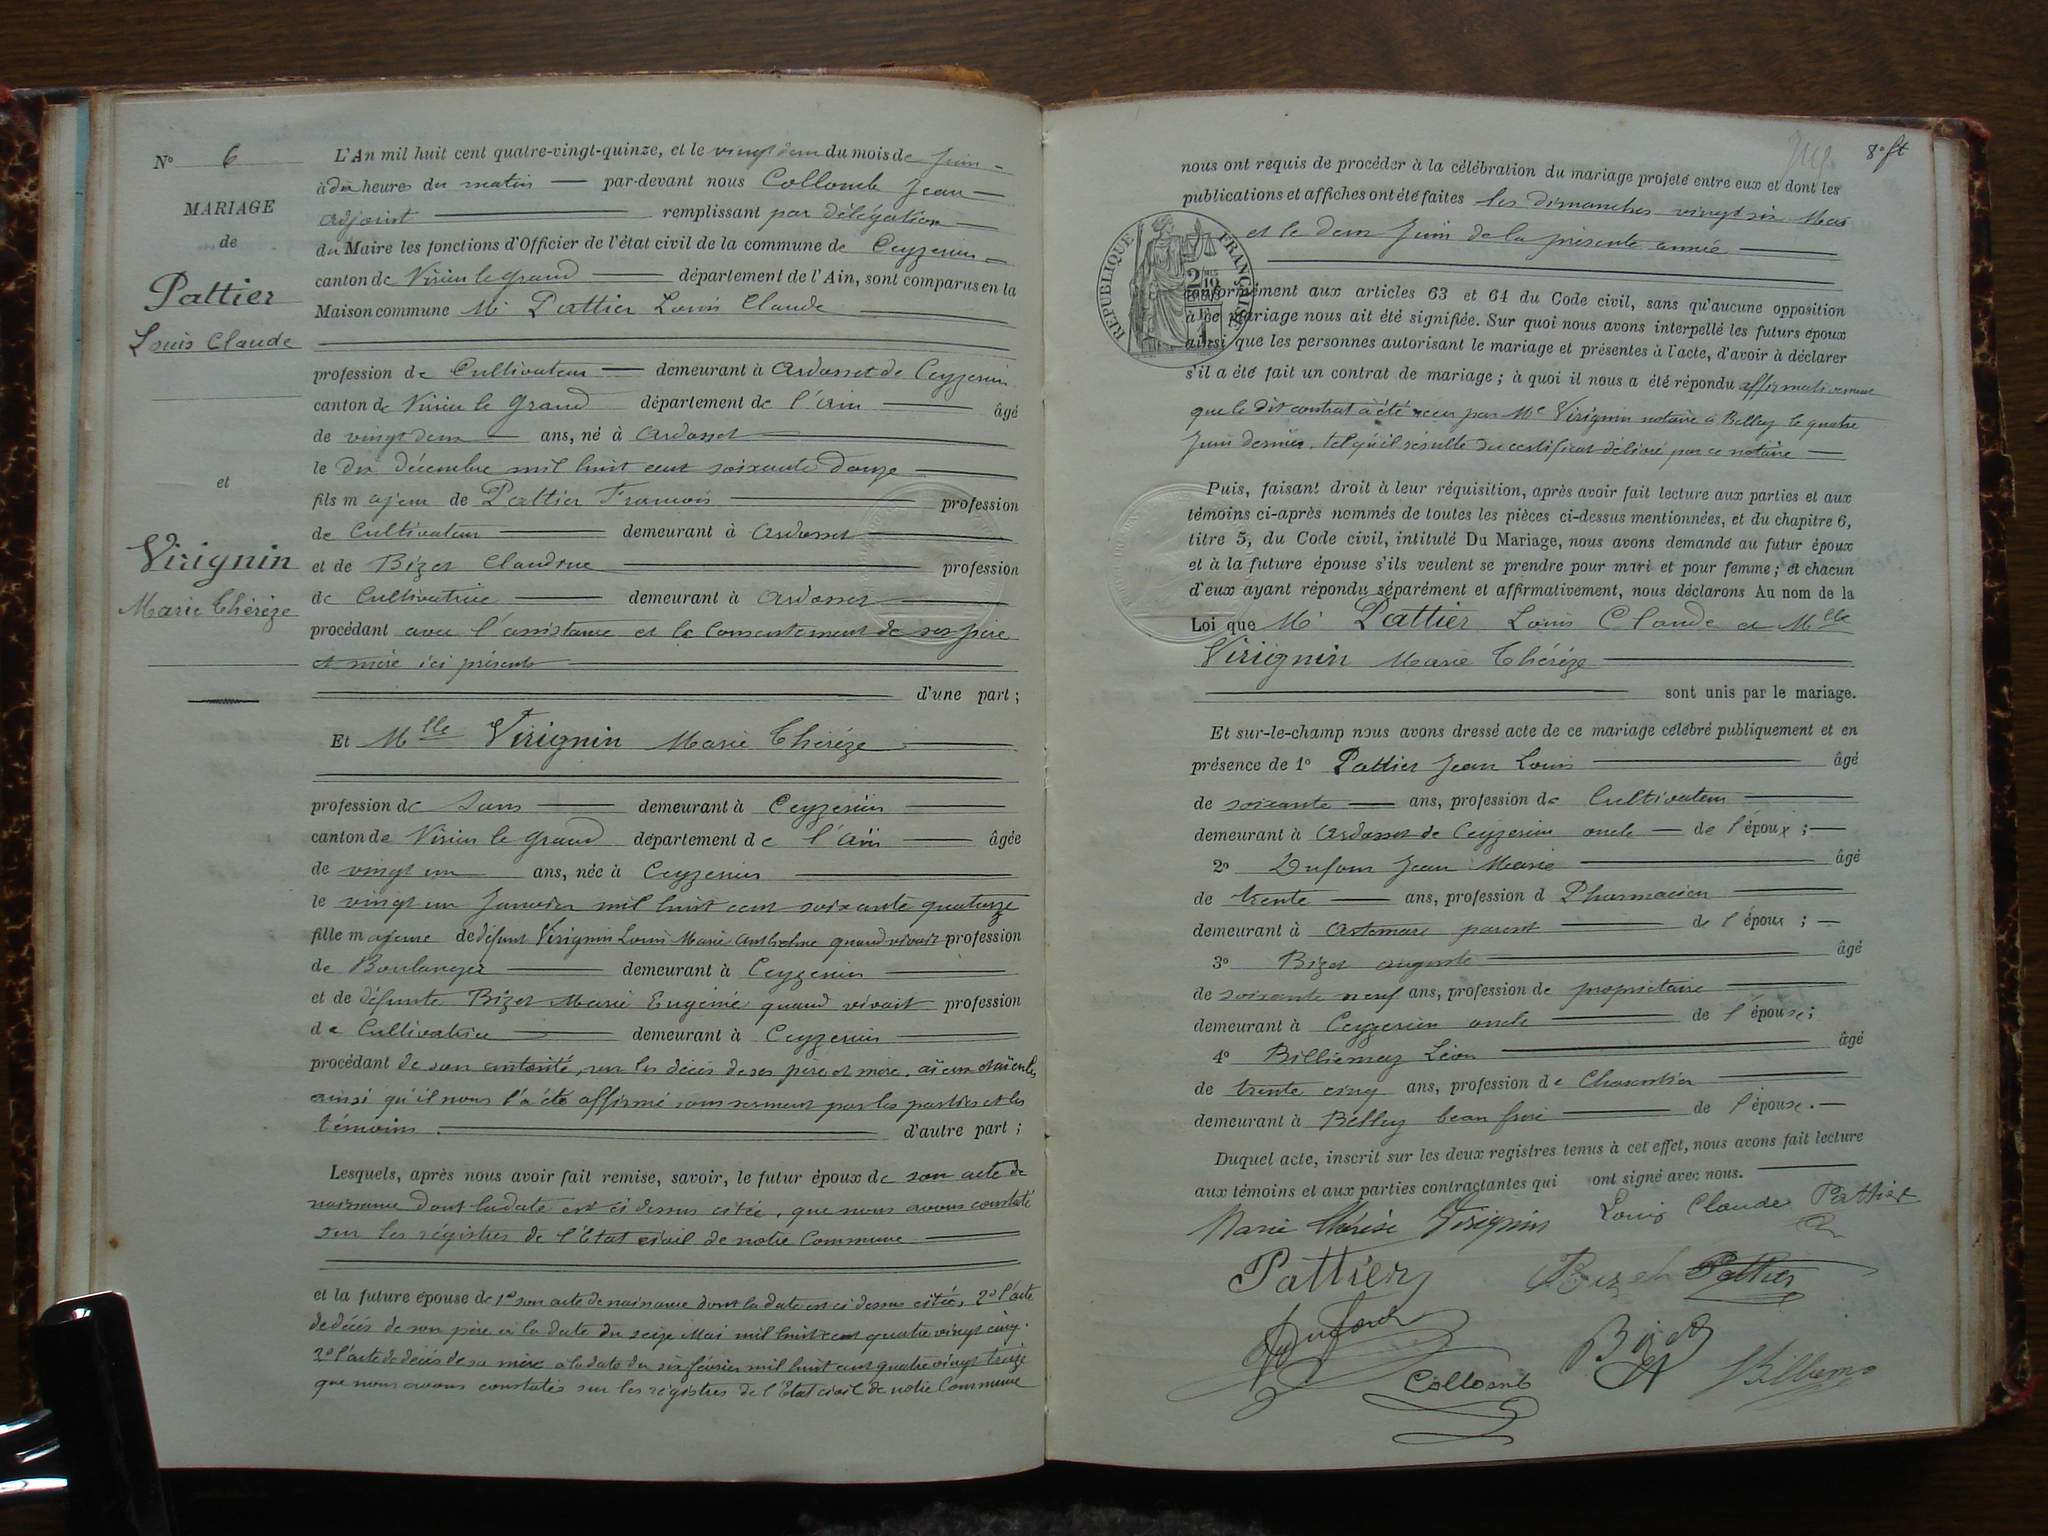 N° 6
MARIAGE
de
Pattier
Louis Claude
et
Virignin
Marie Thérèze
L'An mil huit cent quatre-vingt-quinze, et le vingt deux du mois de Juin
à dix heures du matin par-devant nous Collomb Jean
adjoint remplissant par délégation
du Maire les fonctions d'Officier de l'état civil de la commune de Ceyzerieu
canton de Virieu le Grand département de l'Ain, sont comparus en la
Maison commune Mr Pattier Louis Claude
profession de Cultivateur demeurant à Ardosset de Ceyzerieu
canton de Virieu le Grand département de l'Ain âgé
de vingt deux ans, né à Ardosset
le dix décembre mil huit cent soixante douze
fils majeur de Pattier François profession
de Cultivateur demeurant à Ardosset
et de Bizet Claudine profession
de Cultivatrice demeurant à Ardosset
procédant avec l'assistance et le consentement de ses père
et mère ici présents
d'une part ;
Et Mlle Virignin Marie Thérèze
profession de Sans demeurant à Ceyzerieu
canton de Virieu le Grand département de l'Ain âgée
de vingt un ans, née à Ceyzerieu
le vingt un Janvier mil huit cent soixante quatorze
fille majeure de défunt Virignin Louis Marie Anthelme quand vivait profession
de Boulanger demeurant à Ceyzerieu
et de défunte Bizet Marie Eugénie quand vivait profession
de Cultivatrice demeurant à Ceyzerieu
procédant de son autorité, vu les décès de ses père et mère, aïeux et aïeules
ainsi qu'il nous l'a été affirmé sous serment par les parties et les
témoins. d'autre part ;
Lesquels, après nous avoir fait remise, savoir, le futur époux de son acte de
naissance dont la date est ci dessus citée, que nous avons constaté
sur les régistres de l'Etat civil de notre Commune
et la future épouse de 1° son acte de naissance dont la date est ci dessus citée, 2° l'acte
de décès de son père à la date du seize Mai mil huit cent quatre vingt cinq.
3° l'acte de décès de sa mère à la date du six février mil huit cent quatre vingt treize
que nous avons constatés sur les régistres de l'Etat civil de notre Commune
8e ft
nous ont requis de procéder à la célébration du mariage projeté entre eux et dont les
publications et affiches ont été faites les dimanches vingt six Mai
et le deux Juin de la présente année
RÉPUBLIQUE FRANÇAISE
conformément aux articles 63 et 64 du Code civil, sans qu'aucune opposition
à ce mariage nous ait été signifiée. Sur quoi nous avons interpellé les futurs époux
ainsi que les personnes autorisant le mariage et présentes à l'acte, d'avoir à déclarer
s'il a été fait un contrat de mariage ; à quoi il nous a été répondu affirmativement
que le dit contrat a été reçu par Me Virignin notaire à Belley le quatre
Juin dernier, tel qu'il résulte du certificat délivré par ce notaire
Puis, faisant droit à leur réquisition, après avoir fait lecture aux parties et aux
témoins ci-après nommés de toutes les pièces ci-dessus mentionnées, et du chapitre 6,
titre 5, du Code civil, intitulé Du Mariage, nous avons demandé au futur époux
et à la future épouse s'ils veulent se prendre pour mari et pour femme ; et chacun
d'eux ayant répondu séparément et affirmativement, nous déclarons Au nom de la
Loi que Mr Pattier Louis Claude et Mlle
Virignin Marie Thérèze
sont unis par le mariage.
Et sur-le-champ nous avons dressé acte de ce mariage célébré publiquement et en
présence de 1° Pattier Jean Louis âgé
de soixante ans, profession de Cultivateur
demeurant à Ardosset de Ceyzerieu oncle de l'époux ;
2° Dufour Jean Marie âgé
de trente ans, profession d Pharmacien
demeurant à Artemare parent de l'époux ;
3° Bizet Auguste âgé
de soixante neuf ans, profession de propriétaire
demeurant à Ceyzerieu oncle de l'épouse ;
4° Billiemaz Léon âgé
de trente cinq ans, profession de Charcutier
demeurant à Belley beau frère de l'épouse.
Duquel acte, inscrit sur les deux registres tenus à cet effet, nous avons fait lecture
aux témoins et aux parties contractantes qui ont signé avec nous.
Marie Thérèse Virignin Louis Claude Pattier
Pattier Bizet Pattier
Dufour Bizet
Collomb